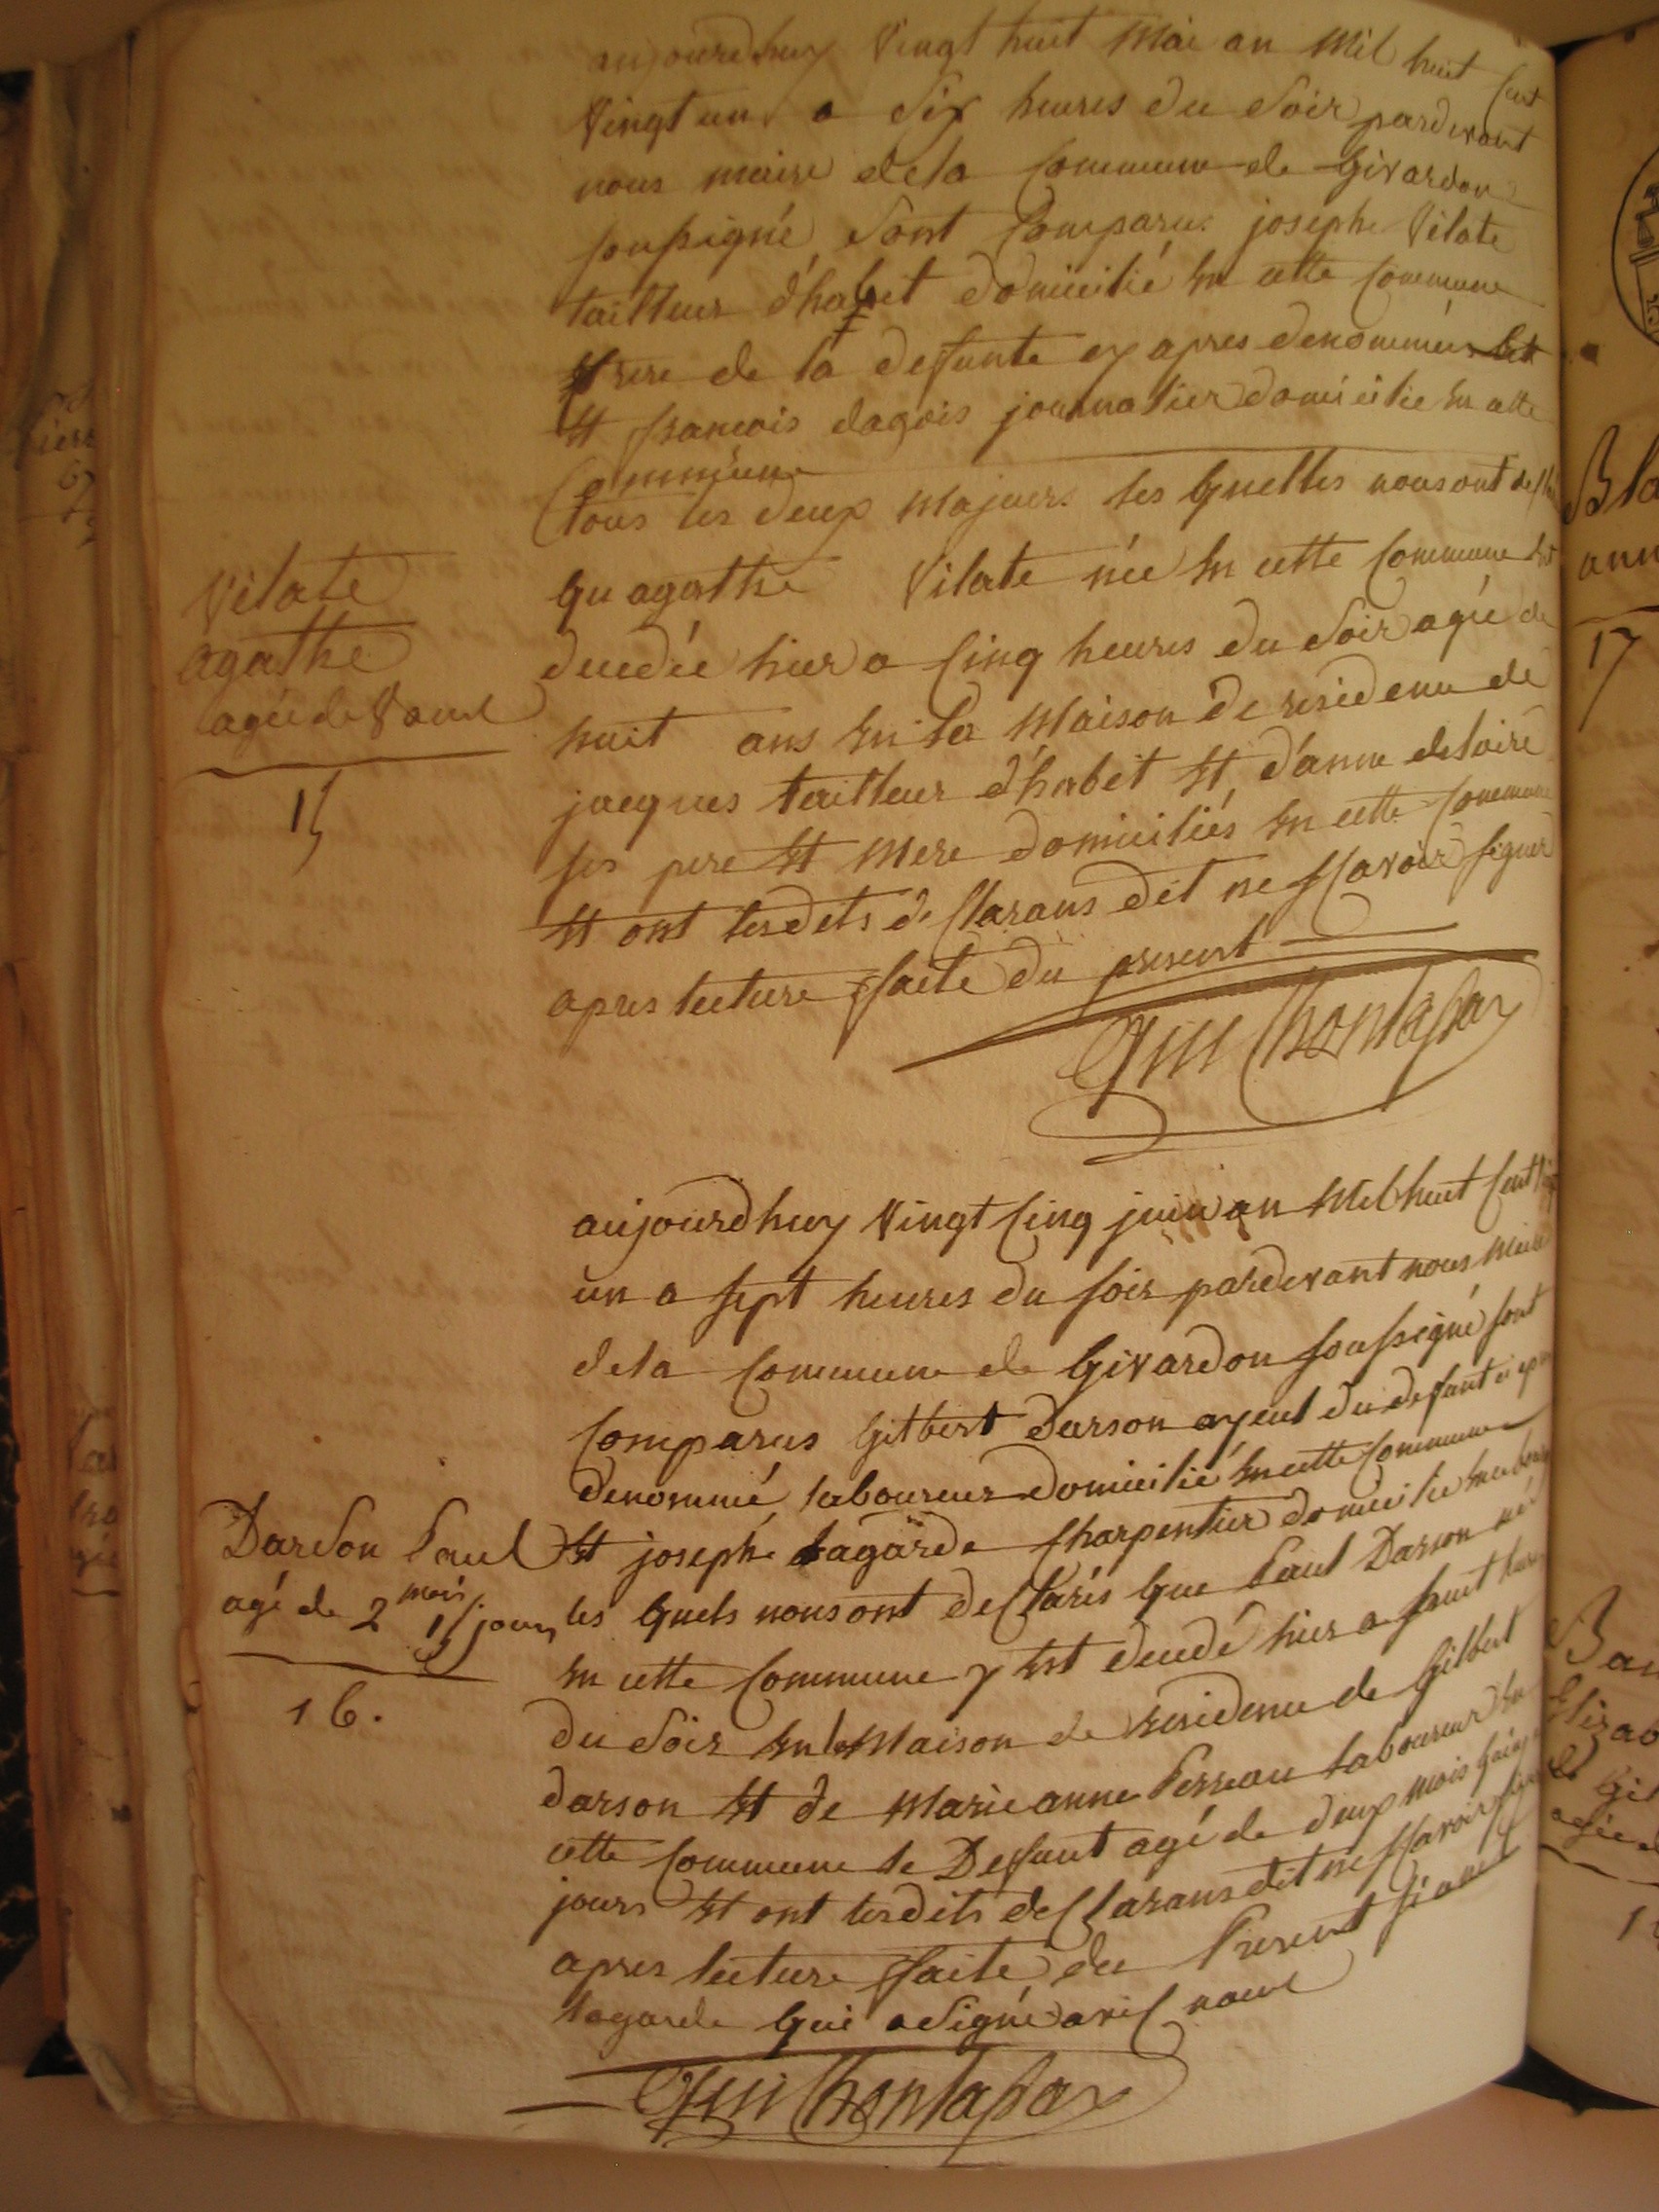 aujourdhuy Vingt huit Mai an Mil huit Cent
Vingt un a Six heures du Soir pardevant
nous maire dela Commune de Givardon
soussigné Sont Comparus joseph Vilate
tailleur d'habit domicilié En cette Commune
frere de la defunte cy apres denommée
Et francois dagois journalier domicilié En cette
Commune
tous les deux Majeurs les Quelles nous ont
Vilate
agathe
agée de 8 ans
15
Qu agathe Vilate née En cette Commune Est
decedée hier a Cinq heures du Soir agée de
huit ans En la Maison de residence de
jacques tailleur d'habit Et d'anne deloire
ses pere Et Mere domiciliés En cette Commune
Et ont lesdits declarans dit ne scavoir signer
apres lecture faite du present
aujourdhuy Vingt Cinq juin an Mil huit Cent
un a sept heures du soir pardevant nous Maire
dela Commune de Givardon soussigné sont
Comparus Gilbert darson ayeul du defunt
denommé, laboureur domicilié En cette Commune
Dardon Paul
agé de 2 mois 15 jours
16.
Et joseph lagarde Charpentier domicilié
les Quels nous ont declarés Que Paul Darson né
En cette Commune y Est decedé hier a huit heures
du Soir En la Maison de residence de Gilbert
darson Et de Marie anne Perreau laboureur En
cette Commune le Defunt agé de deux Mois Quinze
jours Et ont lesdits declarans dit ne scavoir signer
apres lecture faite du Present sinon
lagarde Qui a Signé avec nous